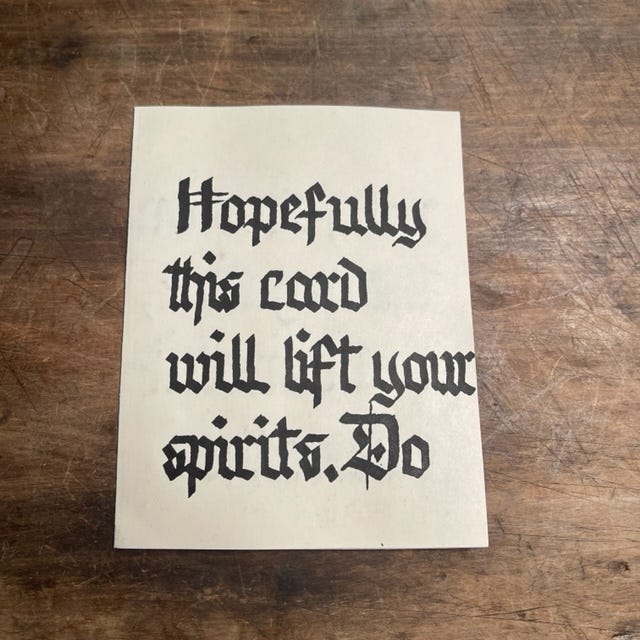 Hopefully
this card
will lift your
spirits. Do